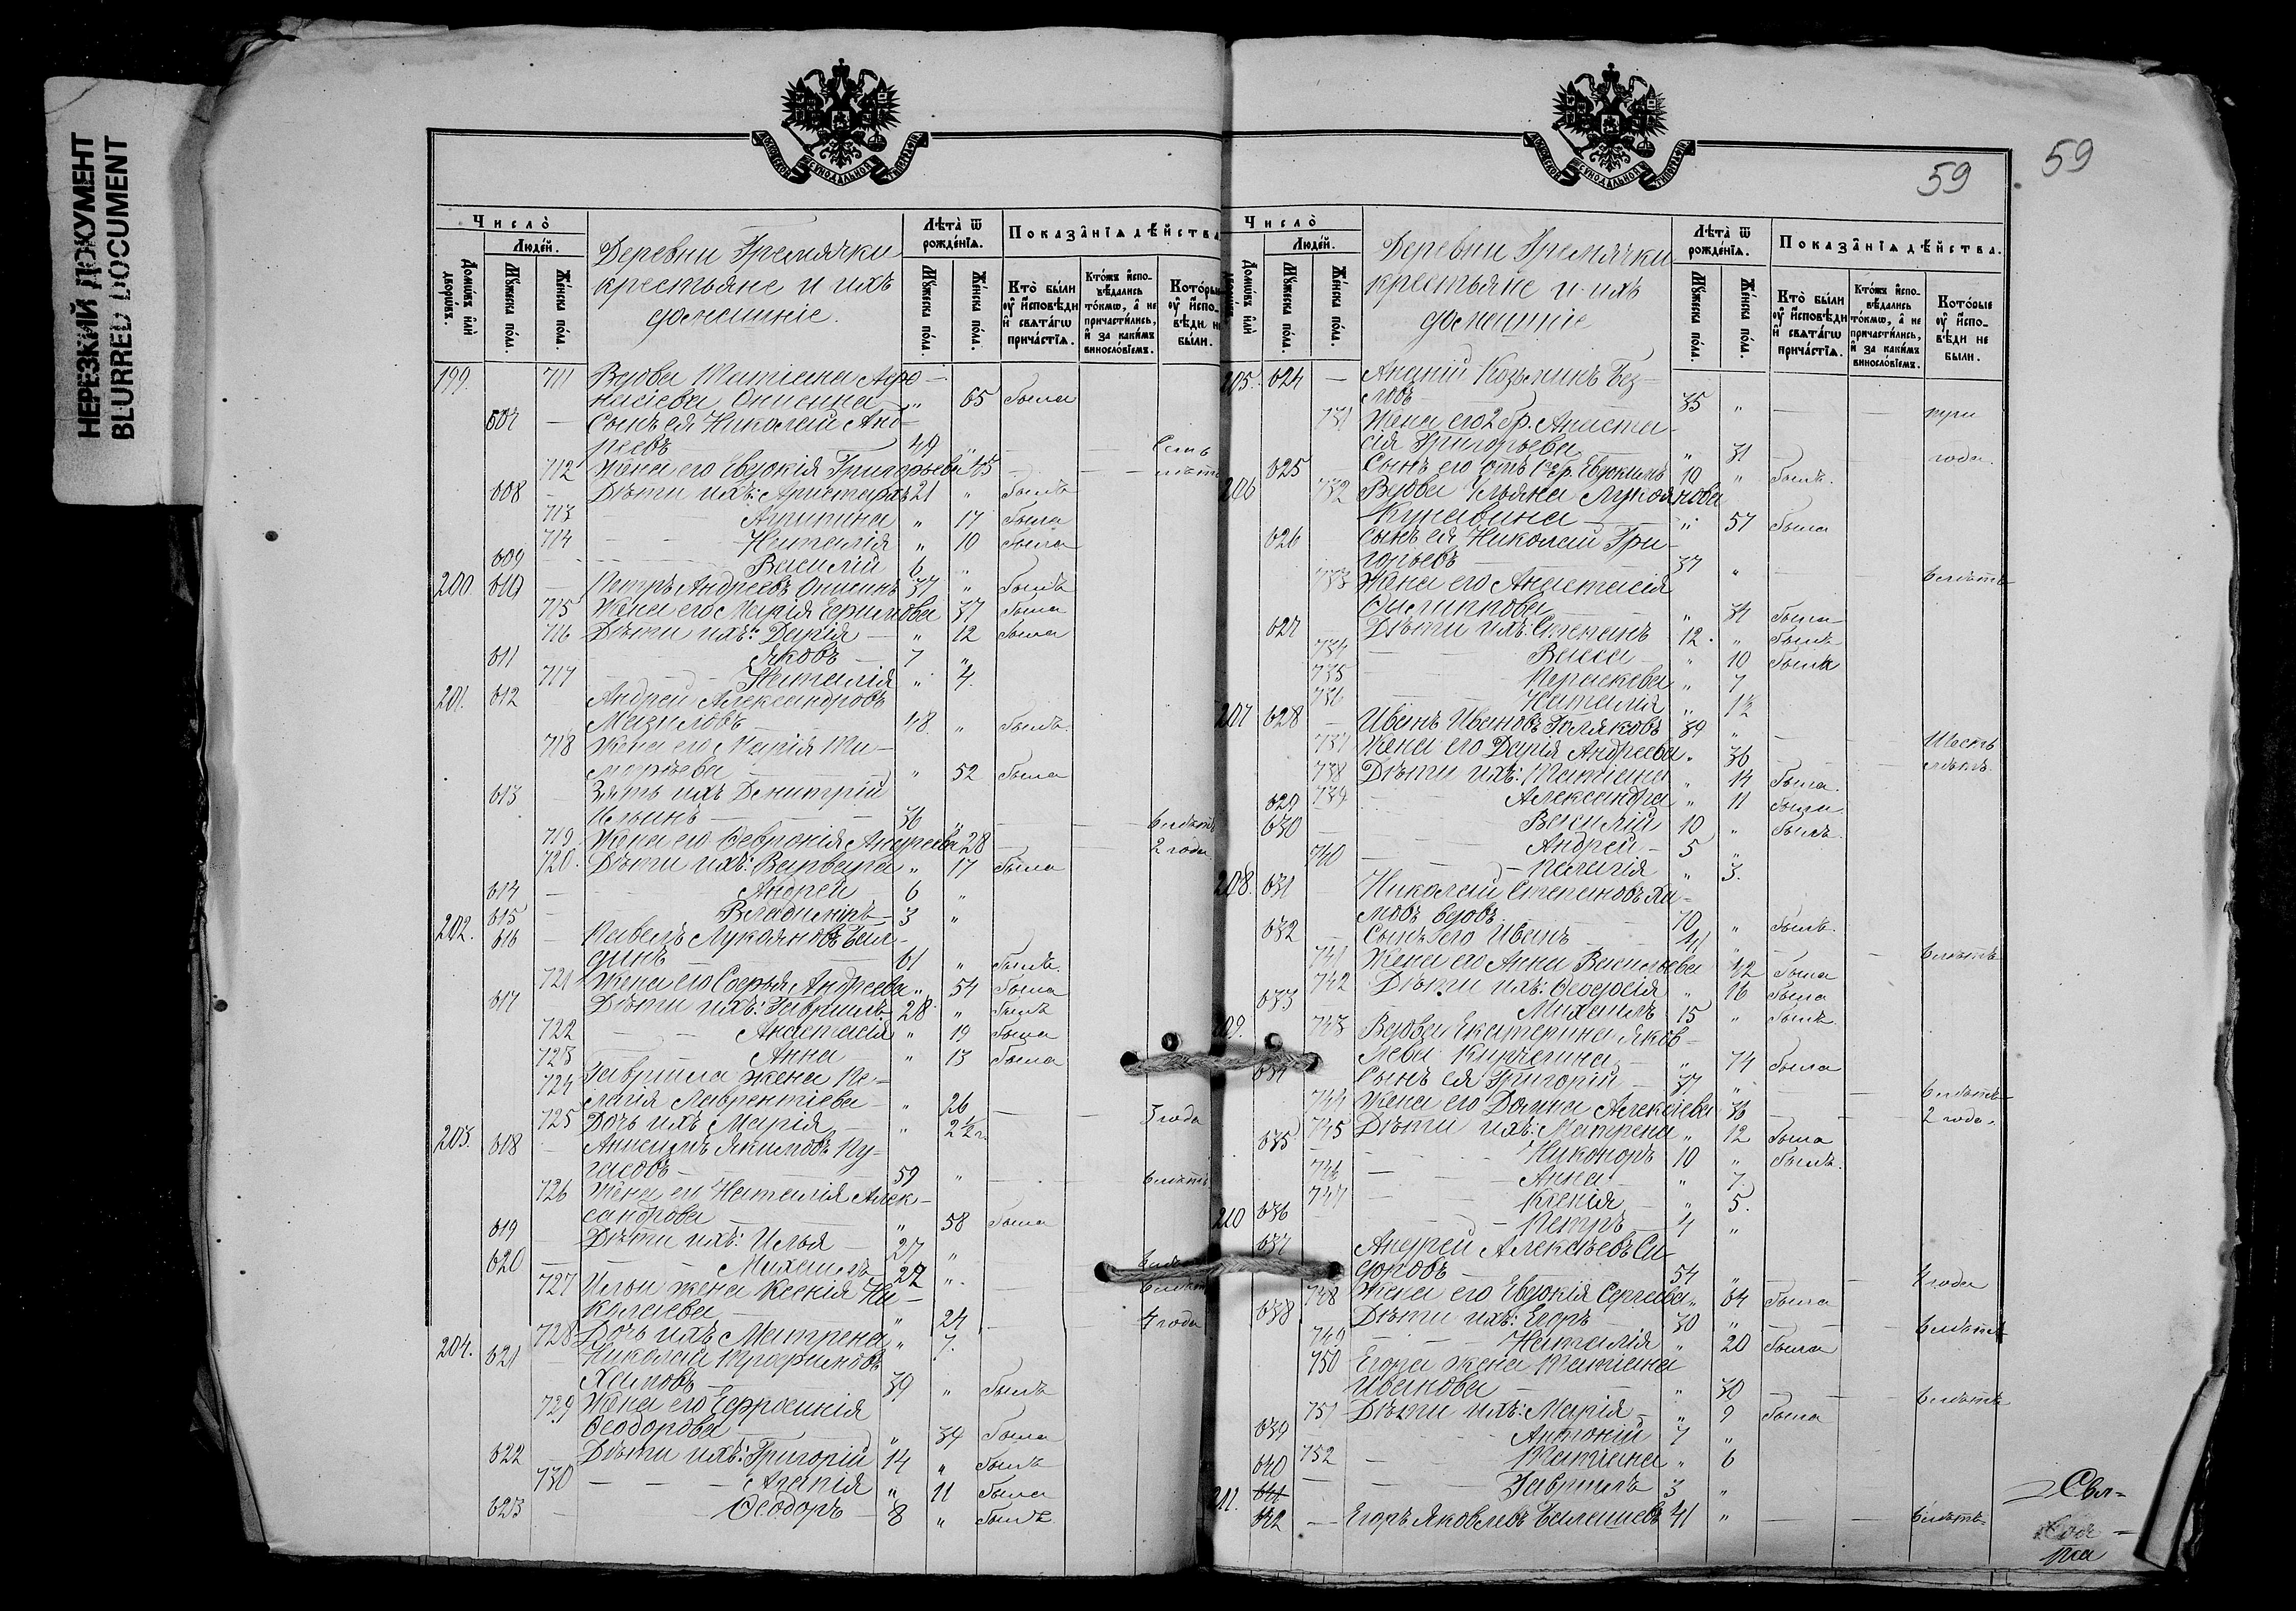 НЕРЕЗКИЙ ДОКУМЕНТ
BLURRED DOCUMENT
Число̀
Людей.
Домѡвъ или дворѡвъ.
Мꙋжеска пола.
Женска пола.
Деревни Гремячки
крестьяне и ихъ
домашніе.
Лѣта̀ ѿ рожденїѧ.
Мꙋжеска пола.
Женска пола.
Показанїѧ дѣйства
Кто̀ были оу҆ исповѣди и свѧтагѡ причастїѧ.
Ктожъ исповѣдались токмѡ, а не причастились, и за какимъ винословїемъ.
Которые оу҆ исповѣди не были.
199. 711 Вдова Татіана Аѳо-
насіева „ 65 была
607 — Сынъ ея Николай Анд-
реевъ 49 „ — — Семь
712 Жена его Евдокія Григорьева 45 — — лѣтъ
608 — Дѣти ихъ: Аристархъ 21 „ былъ
713 — — Агрипина „ 17 была
714 — — Наталія „ 10 была
609 — — Василій 6 „
200. 610 — Петръ Андреевъ 37 „ былъ
715 Жена его Марія Ефимова 37 была
716 Дѣти ихъ: Дарія — „ 12 была
611 — — Яковъ — 7 „
717 — — Наталія „ 4.
201. 612 Андрей Александровъ
Мазиловъ 48. „ былъ.
718 Жена его Марія Ти-
моѳеева „ 52 была
613 — Зять ихъ Димитрій
Ильинъ 36 „ — — влѣтъ
719. Жена его Ѳевронія Андреева 28 — — 2 года
720. Дѣти ихъ: Варвара „ 17 была
614 — — Андрей — 6 „
615 — — Владиміръ — 3 „
202. 616 — Павелъ Лукояновъ
61 „ былъ.
721 Жена его Софья Андреева „ 54 была
617 Дѣти ихъ: Гавріилъ 28 „ былъ
722 — — Анастасія „ 19 была
723 — — Анна — „ 13 была
724 Гавріила жена Пе-
лагія Лаврентіева — „ 26 — — 3 года
725 Дочь ихъ Марія — „ 2½ г.
203. 618 — Акимовъ
59 „ — —
726 Жена его Наталія Алек-
сандрова — „ 58 была
619 — Дѣти ихъ: Илья — 27 „
620 — — Михаилъ 22 „ —
727 Ильи жена Ксенія Ни-
колаева „ 24 — — 4 года
728 Дочь ихъ Матрена „ 7.
204. 621 — Николай Трофимовъ
Хамовъ — 39 „ былъ
729 Жена его Ефросинія
Ѳеодорова „ 34 была
622 — Дѣти ихъ: Григорій 14 „ былъ
730 — — — Агапія „ 11 была
623 — — Ѳеодоръ — 8 „ былъ
59
59
Число̀
Людей.
Домѡвъ или
Мꙋжеска пола.
Женска пола.
Деревни Гремячки
крестьяне и ихъ
домашніе
Лѣта̀ ѿ рожденїѧ.
Мꙋжеска пола.
Женска пола.
Показанїѧ дѣйства.
Кто̀ были оу҆ исповѣди и свѧтагѡ причастїѧ.
Ктожъ исповѣдались токмѡ, а не причастились, и за какимъ винословїемъ.
Которые оу҆ исповѣди не были.
205. 624 — Козьминъ
35 „ — — три
731 Жена его 2 бр. Анаста-
сія Григорьева „ 31 — — года.
625 Сынъ его отъ 1го бр. Евдокимъ 10 „ былъ.
206 732 Вдова Ульяна Лукоянова
„ 57 была
626 Сынъ ея Николай Гри-
горьевъ 37 „ — —
733 Жена его Анастасія
Филиппова „ 34 была
627 Дѣти ихъ: Степанъ 12. „ былъ
734 — — Васса — „ 10 была
735 — — Параскева „ 7
736 — — Наталія „ 1½
207 628 — Иванъ Ивановъ Голяковъ 39 „ — — Шесть
737 Жена его Дарія Андреева „ 36 — — лѣтъ.
738 Дѣти ихъ: Татіана „ 14 была.
629 739 — — Александра „ 11 была
630 — — Василій 10 „ былъ.
— — Андрей — 5 „
740 — — Пелагія „ 3.
208. 631 — Николай Степановъ Ха-
мовъ вдовъ 70 „ былъ.
632 — Сынъ его Иванъ 41 „ —
741 Жена его Анна Васильева 42 была
742 Дѣти ихъ: Ѳеодосія „ 16 была
633 — Михаилъ 15 „ былъ.
209. 743 Вдова Екатерина Яков-
лева „ 74 была
634 Сынъ ея Григорій 37 „ —
744 Жена его Домна Алексіева 36 — — 2 года.
745 Дѣти ихъ: Матрена „ 12 была
635 — — Никоноръ 10 „ былъ.
746 — — Анна — „ 7.
747 — — Ксенія — „ 5.
210 636 — — Петръ — 4 „
637 Андрей Алексѣевъ Си-
доровъ — 54 „ — — 4 года
748 Жена его Евдокія Сергеева „ 64 была
638 Дѣти ихъ: Егоръ — 30 „ —
749 — — Наталія „ 20 была
750 Егора жена Татіана
Иванова — „ 30 — —
751 Дѣти ихъ: Марія — „ 9 была
639 — Антоній 7 „
752 — — Татіана „ 6
640 — — Гавріилъ 3 „
211. 641
642 — Егоръ Яковлевъ 41 „ — —